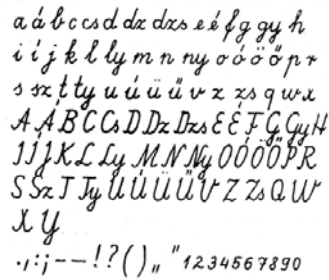 a á b c cs d dz dzs e é f g gy h
i í j k l ly m n ny o ó ö ő p r
s sz t ty u ú ü ű v z zs q w x
A Á B C Cs D Dz Dzs E É F G Gy H
I Í J K L Ly M N Ny O Ó Ö Ő P R
S Sz T Ty U Ú Ü Ű V Z Zs Q W
X Y
. , : ; - – ! ? ( ) „ " 1 2 3 4 5 6 7 8 9 0